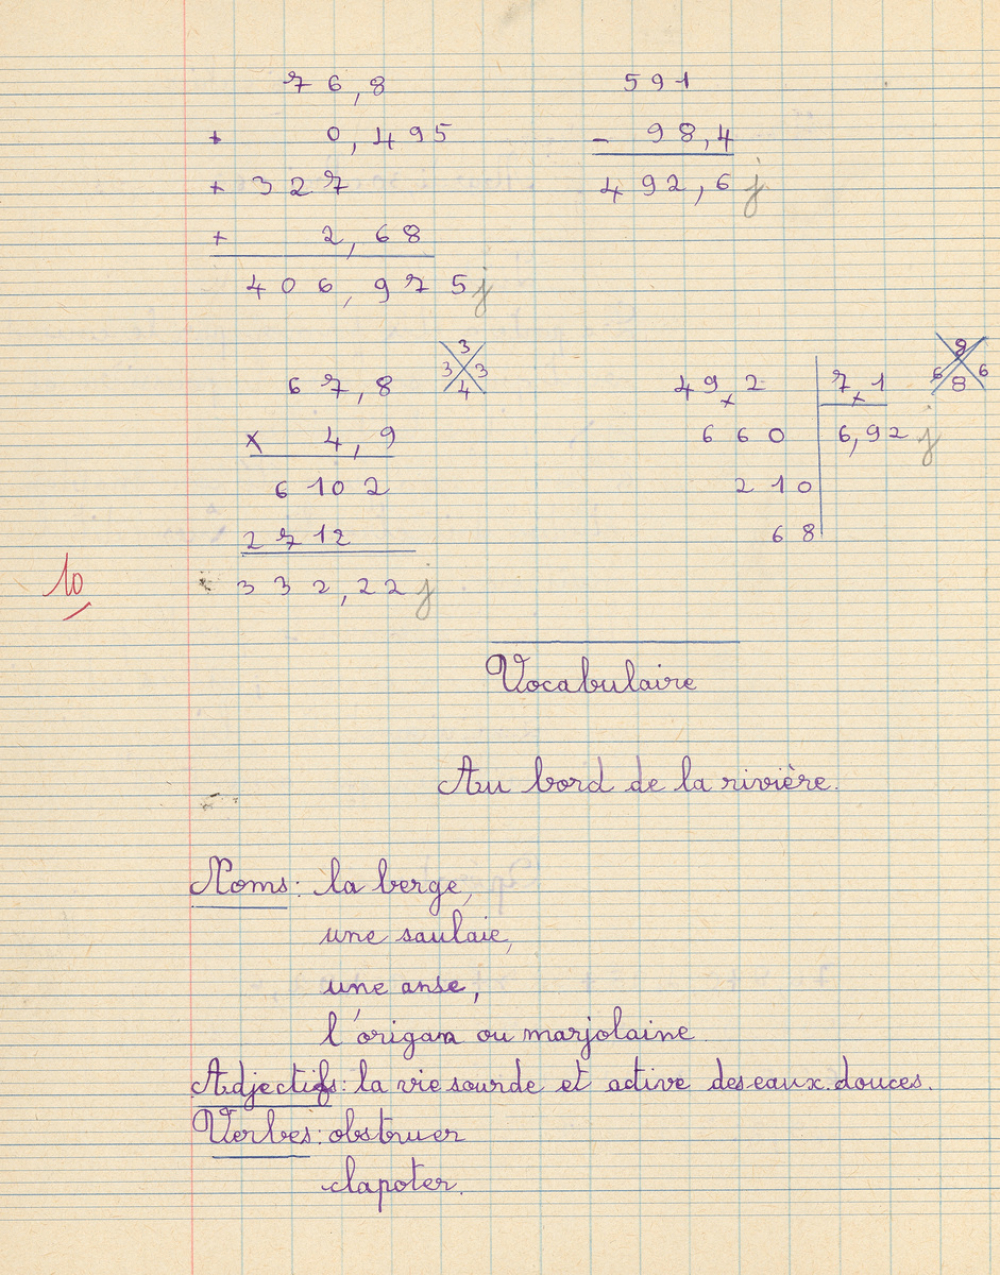 76,8
+ 0,495
+ 327
+ 2,68
406,975 j
591
- 98,4
492,6 j
67,8
x 4,9
6102
2712
332,22 j
3
3 3
4
49,2 7,1
660 6,92 j
210
68
8
6 6
8
10
Vocabulaire
Au bord de la rivière.
Noms: la berge,
une saulaie,
une anse,
l'origan ou marjolaine.
Adjectifs: la vie sourde et active des eaux douces.
Verbes: obstruer
clapoter.